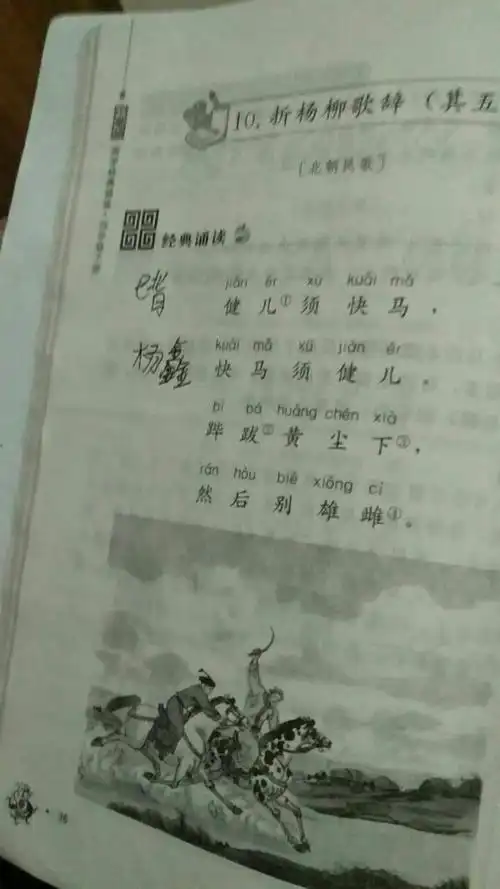 10.折杨柳歌辞（其五
（北朝民歌）
经典诵读
jiàn ér xū kuài mǎ
健儿①须快马，
杨鑫
kuài mǎ xū jiàn ér
快马须健儿。
bì bá huáng chén xià
跸跋②黄尘下③，
rán hòu bié xióng cí
然后别雄雌④。